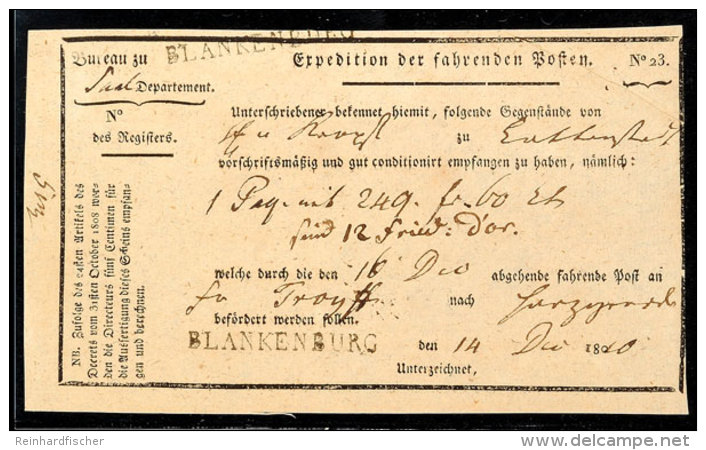 BLANKENBURG
Bureau zu
Expedition der fahrenden Posten.
No 23.
Saal Departement.
No
des Registers.
Unterschriebener bekennet hiemit, folgende Gegenstände von
zu
vorschriftsmäßig und gut conditionirt empfangen zu haben, nämlich:
1 Paq. mit 249. fr. 60 Ct
sind 12 Fried: d'or.
welche durch die den 16 Dec abgehende fahrende Post an
nach
befördert werden sollen.
BLANKENBURG
den 14 Dec 1810
Unterzeichnet,
NB. Zufolge des 24sten Artikels des
Decrets vom 31sten October 1808 wer-
den die Directeurs fünf Centimen für
die Ausfertigung dieses Scheins empfan-
gen und berechnen.
Reinhardfischer
www.delcampe.net